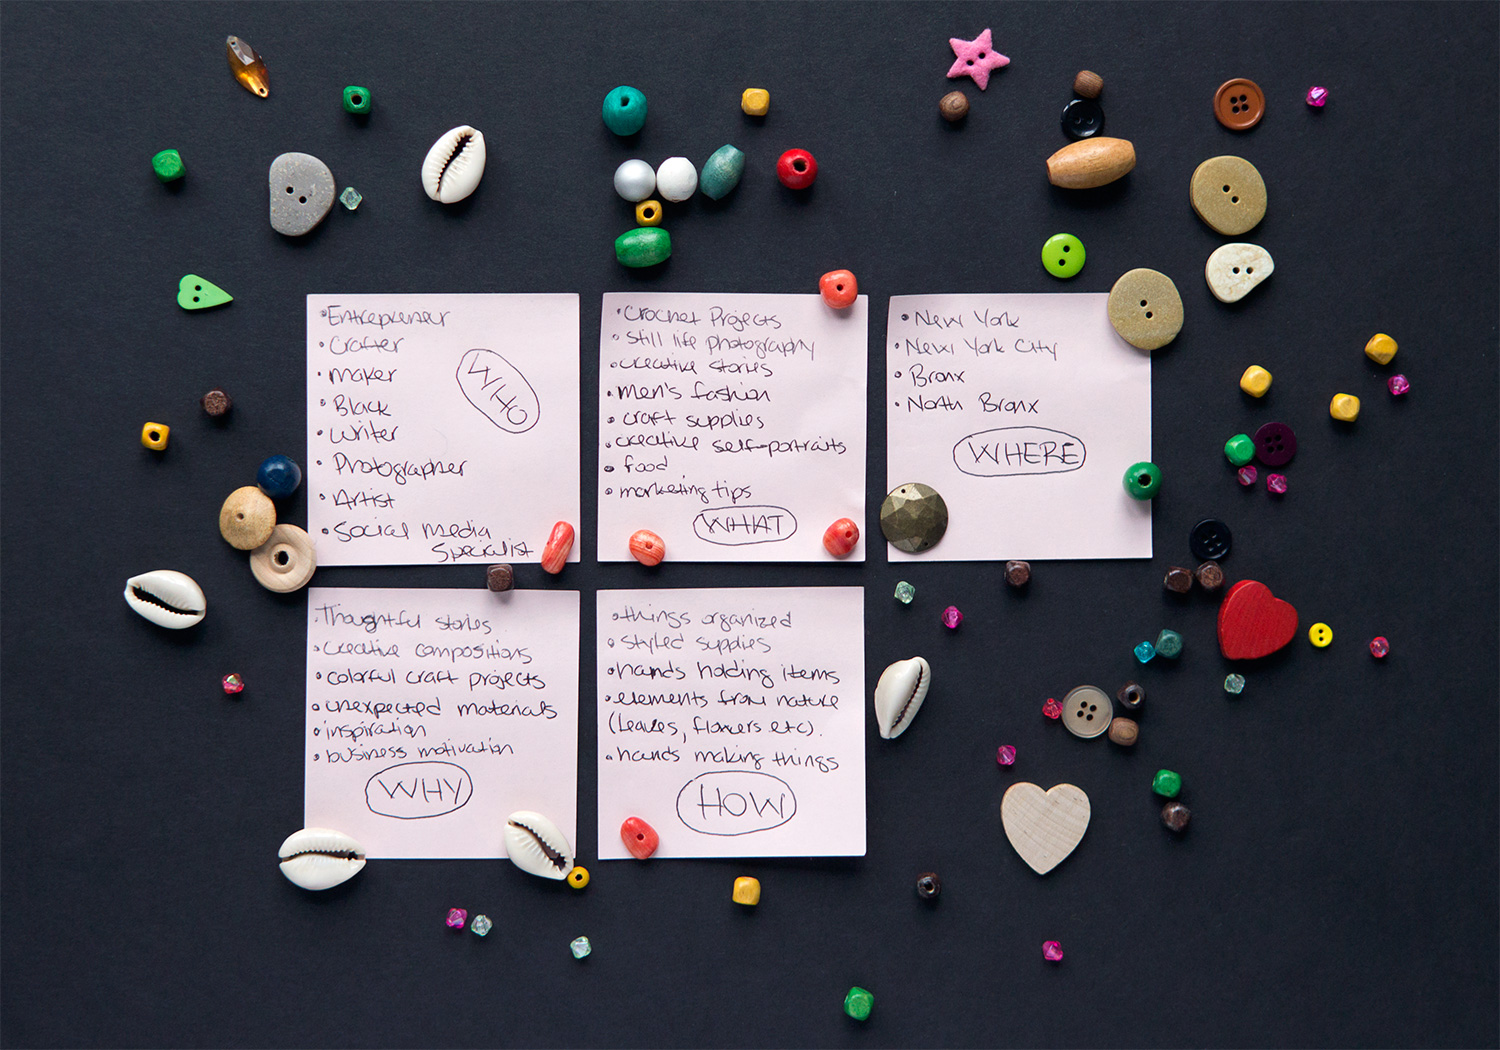 •Entrepreneur
•Crafter
•maker
•Black
•Writer
•Photographer
•Artist
•Social media
Specialist
WHO
•Crochet Projects
•Still life photography
•creative stories
•men's fashion
•craft supplies
•creative self-portraits
•food
•marketing tips
WHAT
•New York
•New York City
•Bronx
•North Bronx
WHERE
•Thoughtful stories
•creative compositions
•colorful craft projects
•unexpected materials
•inspiration
•business motivation
WHY
•things organized
•styled supplies
•hands holding items
•elements from nature
(leaves, flowers etc).
•hands making things
HOW